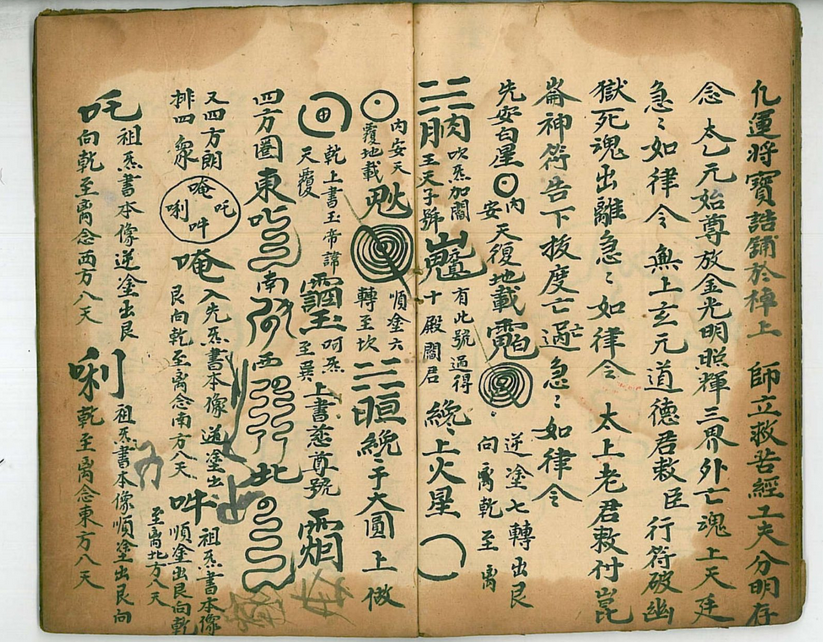 凢運將寶誥鋪於棹上 師立救苦經工夫分明存
念太乙元始尊放金光明照輝三界外亡魂上天廷
急〻如律令 無上玄元道德君敕臣行符破幽
獄死魂出離急〻如律令 太上老君敕付崑
崙神符告下拔度亡 急〻如律令
先安白星 内安天復地載 逆塗七轉出艮向离乾至离
吹炁加閣 王天子號 有此號過得十殿閻君 纔〻上火星
内安天覆地載 順塗六轉至坎 纔于大圓上做
乾上書玉帝諱 天覆 呵炁至巽 上書慈尊號
四方圈東 南 西 北
又四方朗排四象 唵吒唎吽 唵 入先炁書本像逆塗出艮向乾至离念南方八天 吽 祖炁書本像順塗出艮向乾至离北方八天
吒 祖炁書本像逆塗出艮向乾至离念西方八天 唎 祖炁書本像順塗出艮向乾至离念東方八天